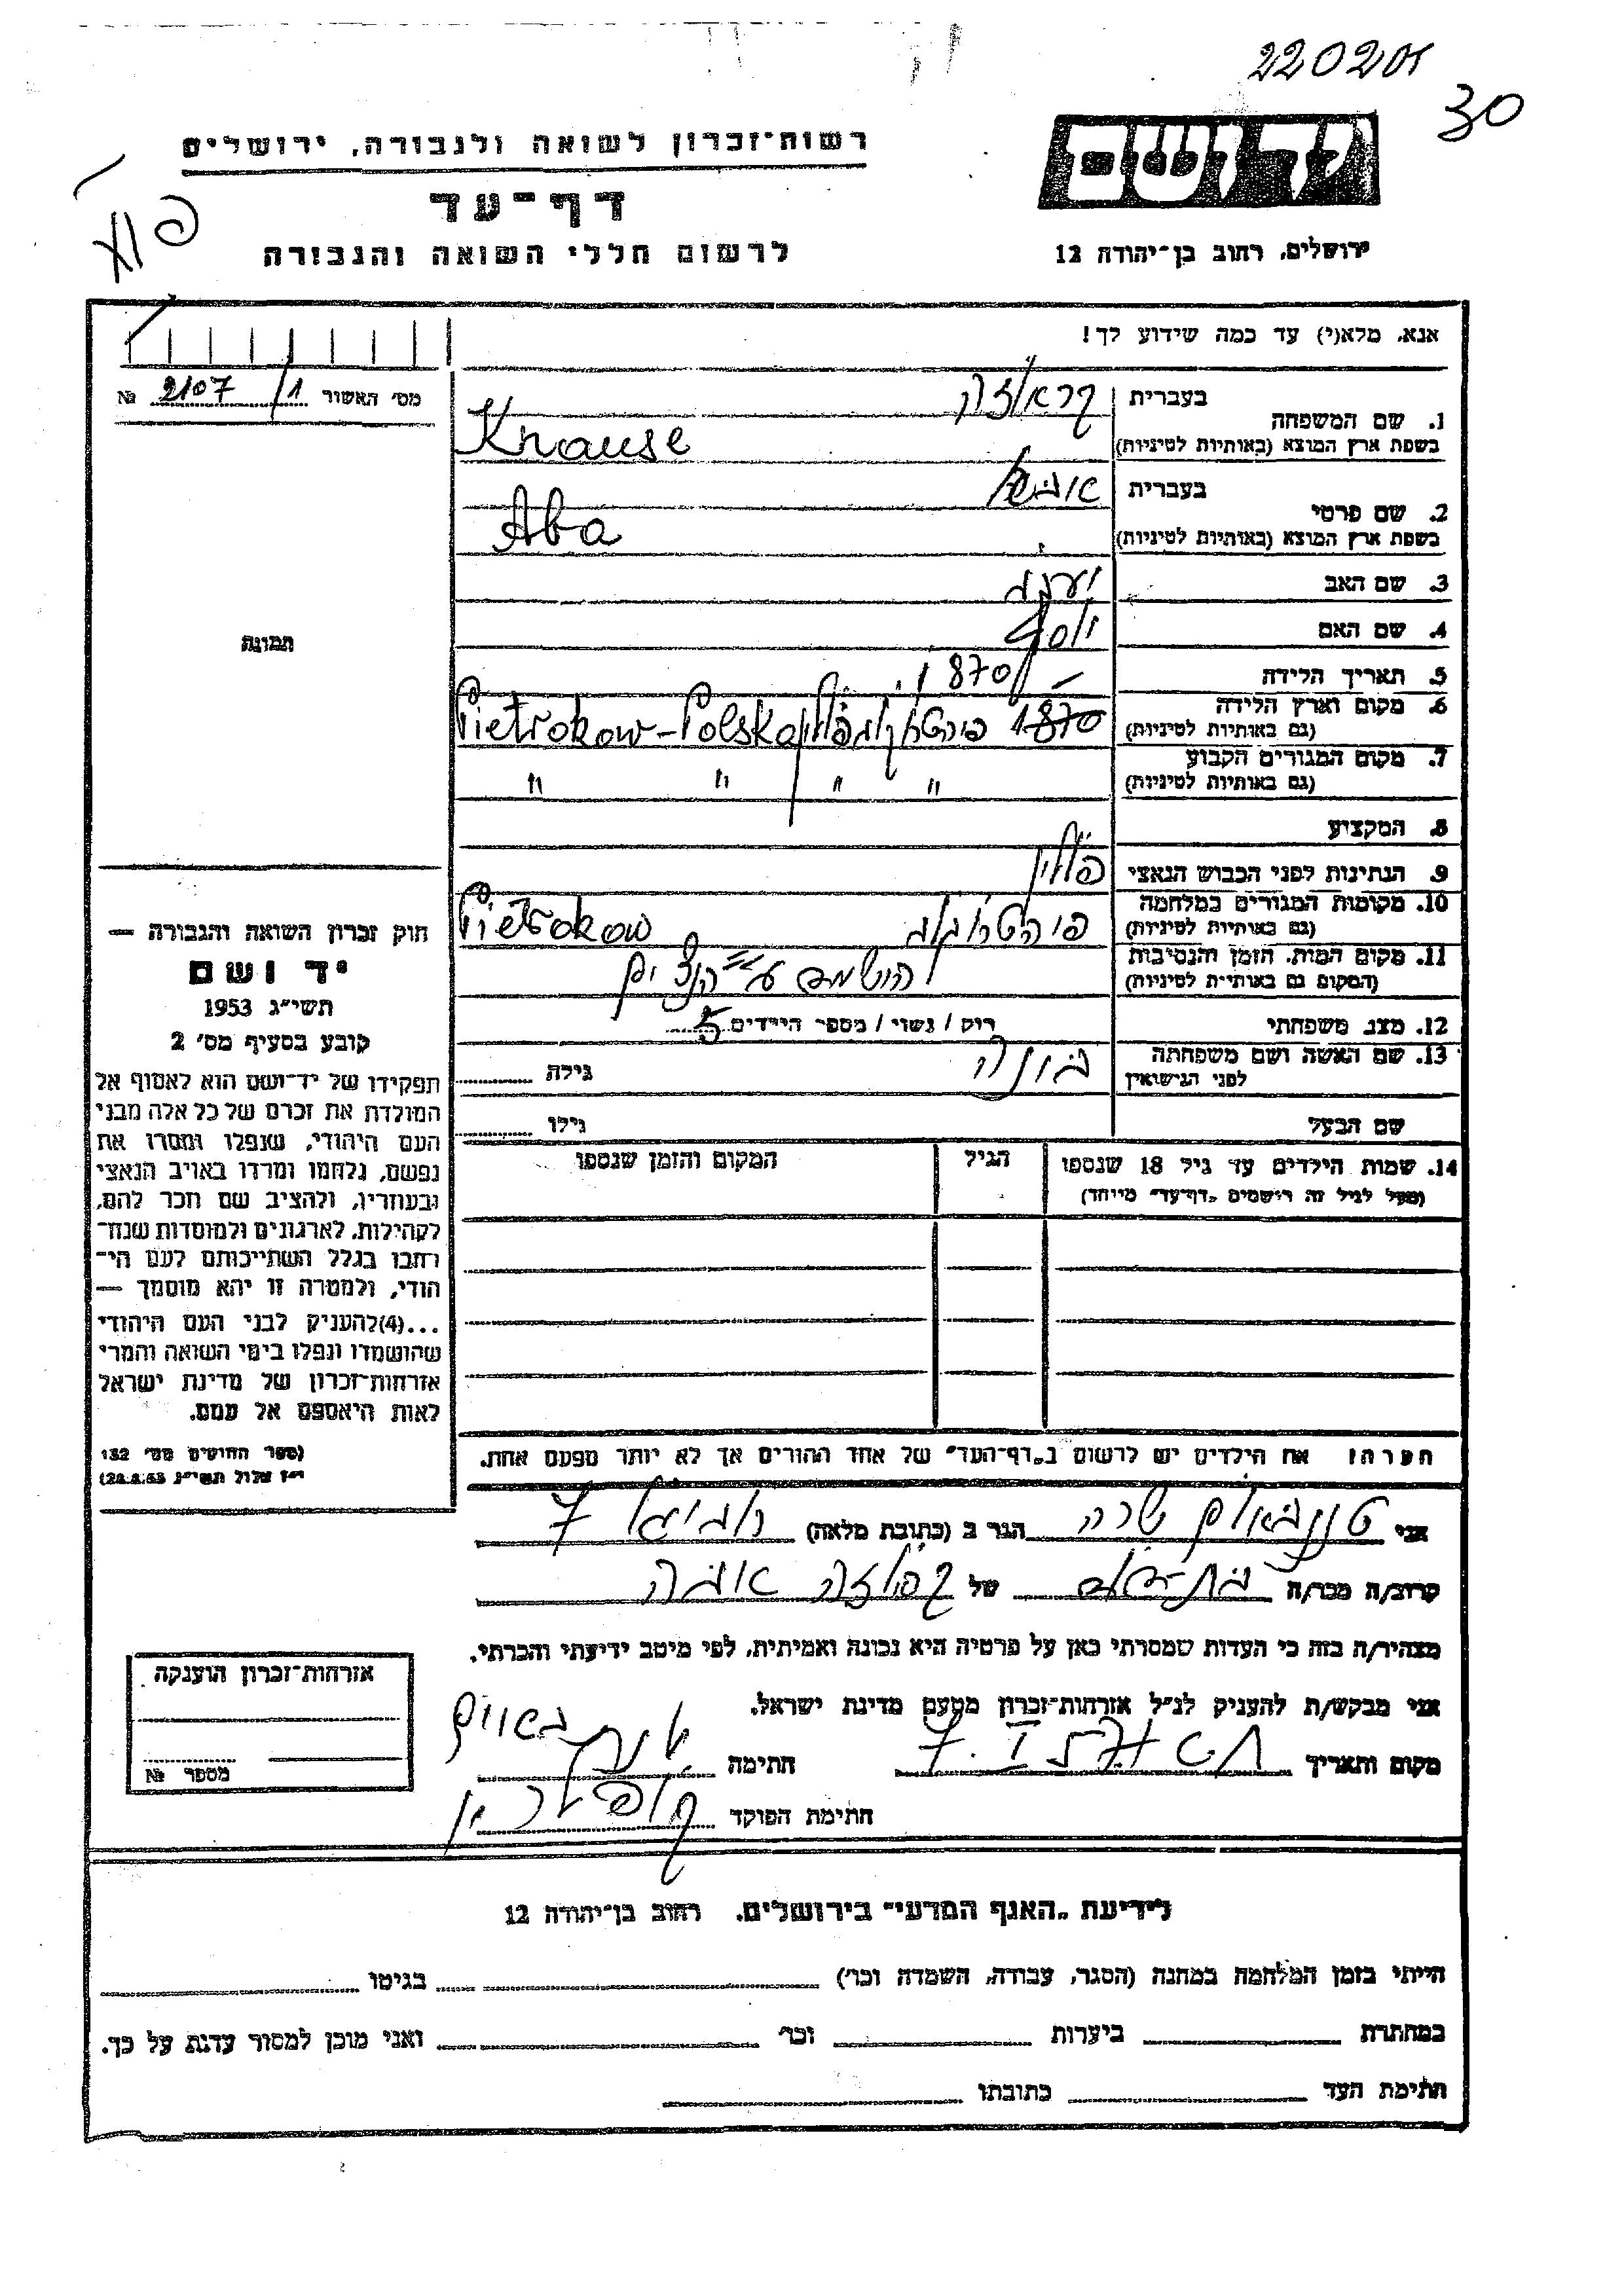 220201
30
רשות־זכרון לשואה ולגבורה, ירושלים
דף־עד
לרשום חללי השואה והגבורה
יד ושם
ירושלים, רחוב בן־יהודה 12
אנא, מלא(י) עד כמה שידוע לך!
מס׳ האשור 2107/1 №
1. שם המשפחה
בעברית
בשפת ארץ המוצא (באותיות לטיניות) Krause
2. שם פרטי
בעברית
בשפת ארץ המוצא (באותיות לטיניות) Aba
3. שם האב
4. שם האם
5. תאריך הלידה 1870
6. מקום וארץ הלידה
(גם באותיות לטיניות) 1870 פולין Pietrokow-Polska
7. מקום המגורים הקבוע
(גם באותיות לטיניות) " " " "
8. המקצוע
9. הנתינות לפני הכבוש הנאצי פולין
10. מקומות המגורים במלחמה
(גם באותיות לטיניות) Pietrokow
11. מקום המות, הזמן והנסיבות
(המקום גם באותיות לטיניות)
12. מצב משפחתי רוק / נשוי / מספר הילדים 5
13. שם האשה ושם משפחתה
לפני הנישואין
גילה
שם הבעל
גילו
14. שמות הילדים עד גיל 18 שנספו
(מעל לגיל זה רישמים „דף־עד״ מיוחד)
הגיל
המקום והזמן שנספו
הערה: את הילדים יש לרשום ב„דף־העד״ של אחד ההורים אך לא יותר מפעם אחת.
תמונה
חוק זכרון השואה והגבורה —
יד ושם
תשי״ג 1953
קובע בסעיף מס׳ 2
תפקידו של יד־ושם הוא לאסוף אל
המולדת את זכרם של כל אלה מבני
העם היהודי, שנפלו ומסרו את
נפשם, נלחמו ומרדו באויב הנאצי
ובעוזריו, ולהציב שם וזכר להם,
לקהילות, לארגונים ולמוסדות שנח־
רבו בגלל השתייכותם לעם הי־
הודי, ולמטרה זו יהא מוסמך —
...(4)להעניק לבני העם היהודי
שהושמדו ונפלו בימי השואה והמרי
אזרחות־זכרון של מדינת ישראל
לאות היאספם אל עמם.
(ספר החוקים מס׳ 132
י״ז אלול תשי״ג 28.8.53)
אני טננבאום שרה הגר ב (כתובת מלאה)
קרוב/ה מכר/ה של
מצהיר/ה בזה כי העדות שמסרתי כאן על פרטיה היא נכונה ואמיתית, לפי מיטב ידיעתי והכרתי.
אני מבקש/ת להעניק לנ״ל אזרחות־זכרון מטעם מדינת ישראל.
מקום ותאריך חתימה
חתימת הפוקד
אזרחות־זכרון הוענקה
מספר №
לידיעת „האגף המדעי״ בירושלים, רחוב בן־יהודה 12
הייתי בזמן המלחמה במחנה (הסגר, עבודה, השמדה וכו׳) בגיטו
במחתרת ביערות וכו׳ ואני מוכן למסור עדות על כך.
חתימת העד כתובתו